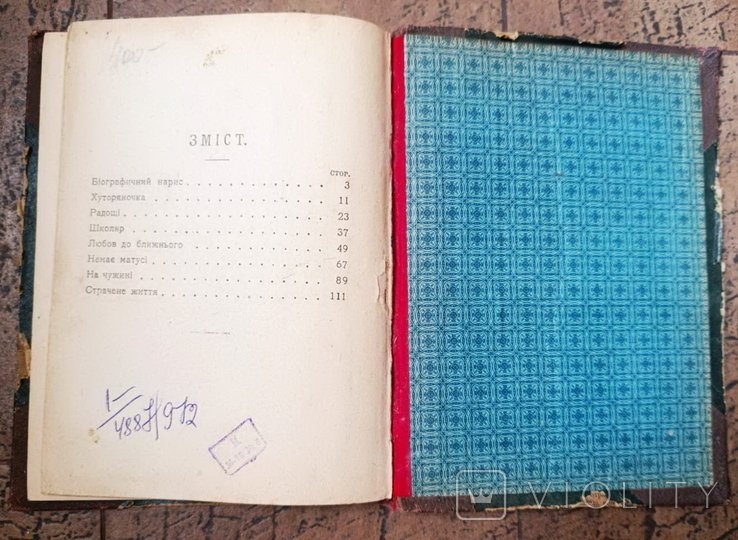 400-
ЗМІСТ.
стор.
Біографичний нарис . . . . . . . . . . . . 3
Хуторяночка . . . . . . . . . . . . 11
Радощі . . . . . . . . . . . . 23
Школяр . . . . . . . . . . . . 37
Любов до ближнього . . . . . . . . . . . . 49
Немає матусі . . . . . . . . . . . . 67
На чужині . . . . . . . . . . . . 89
Страчене життя . . . . . . . . . . . . 111
VIOLITY